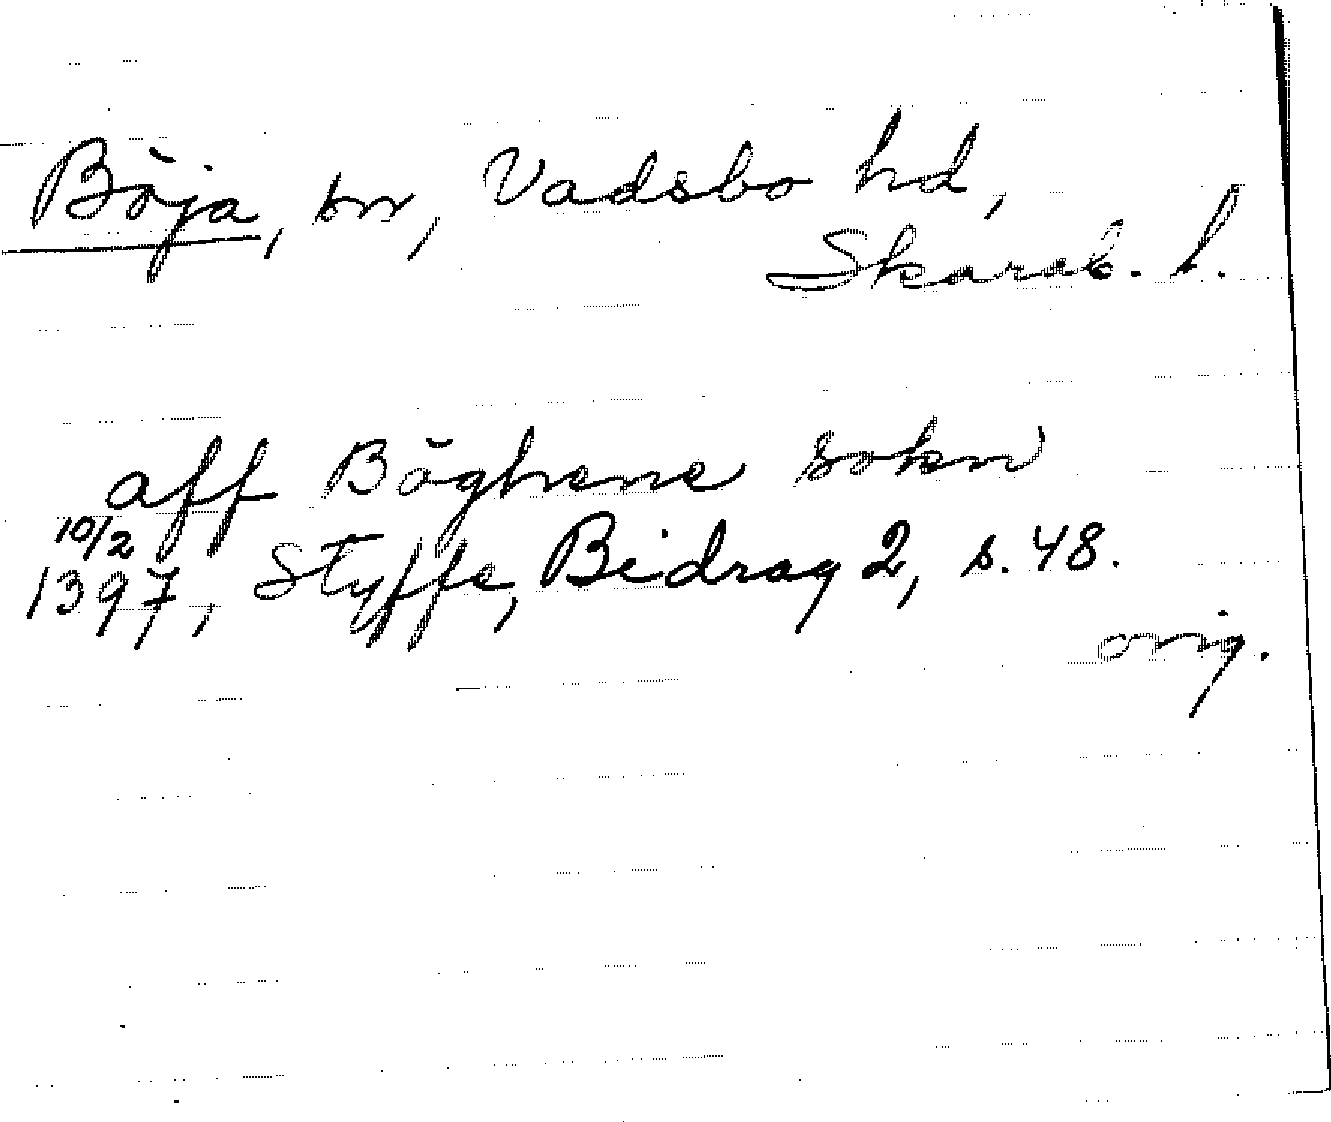 Böja, sn, Vadsbo hd,
Skarab. l.
aff Böghene sokn
10/2
1397, Styffe, Bidrag 2, s. 48.
orig.